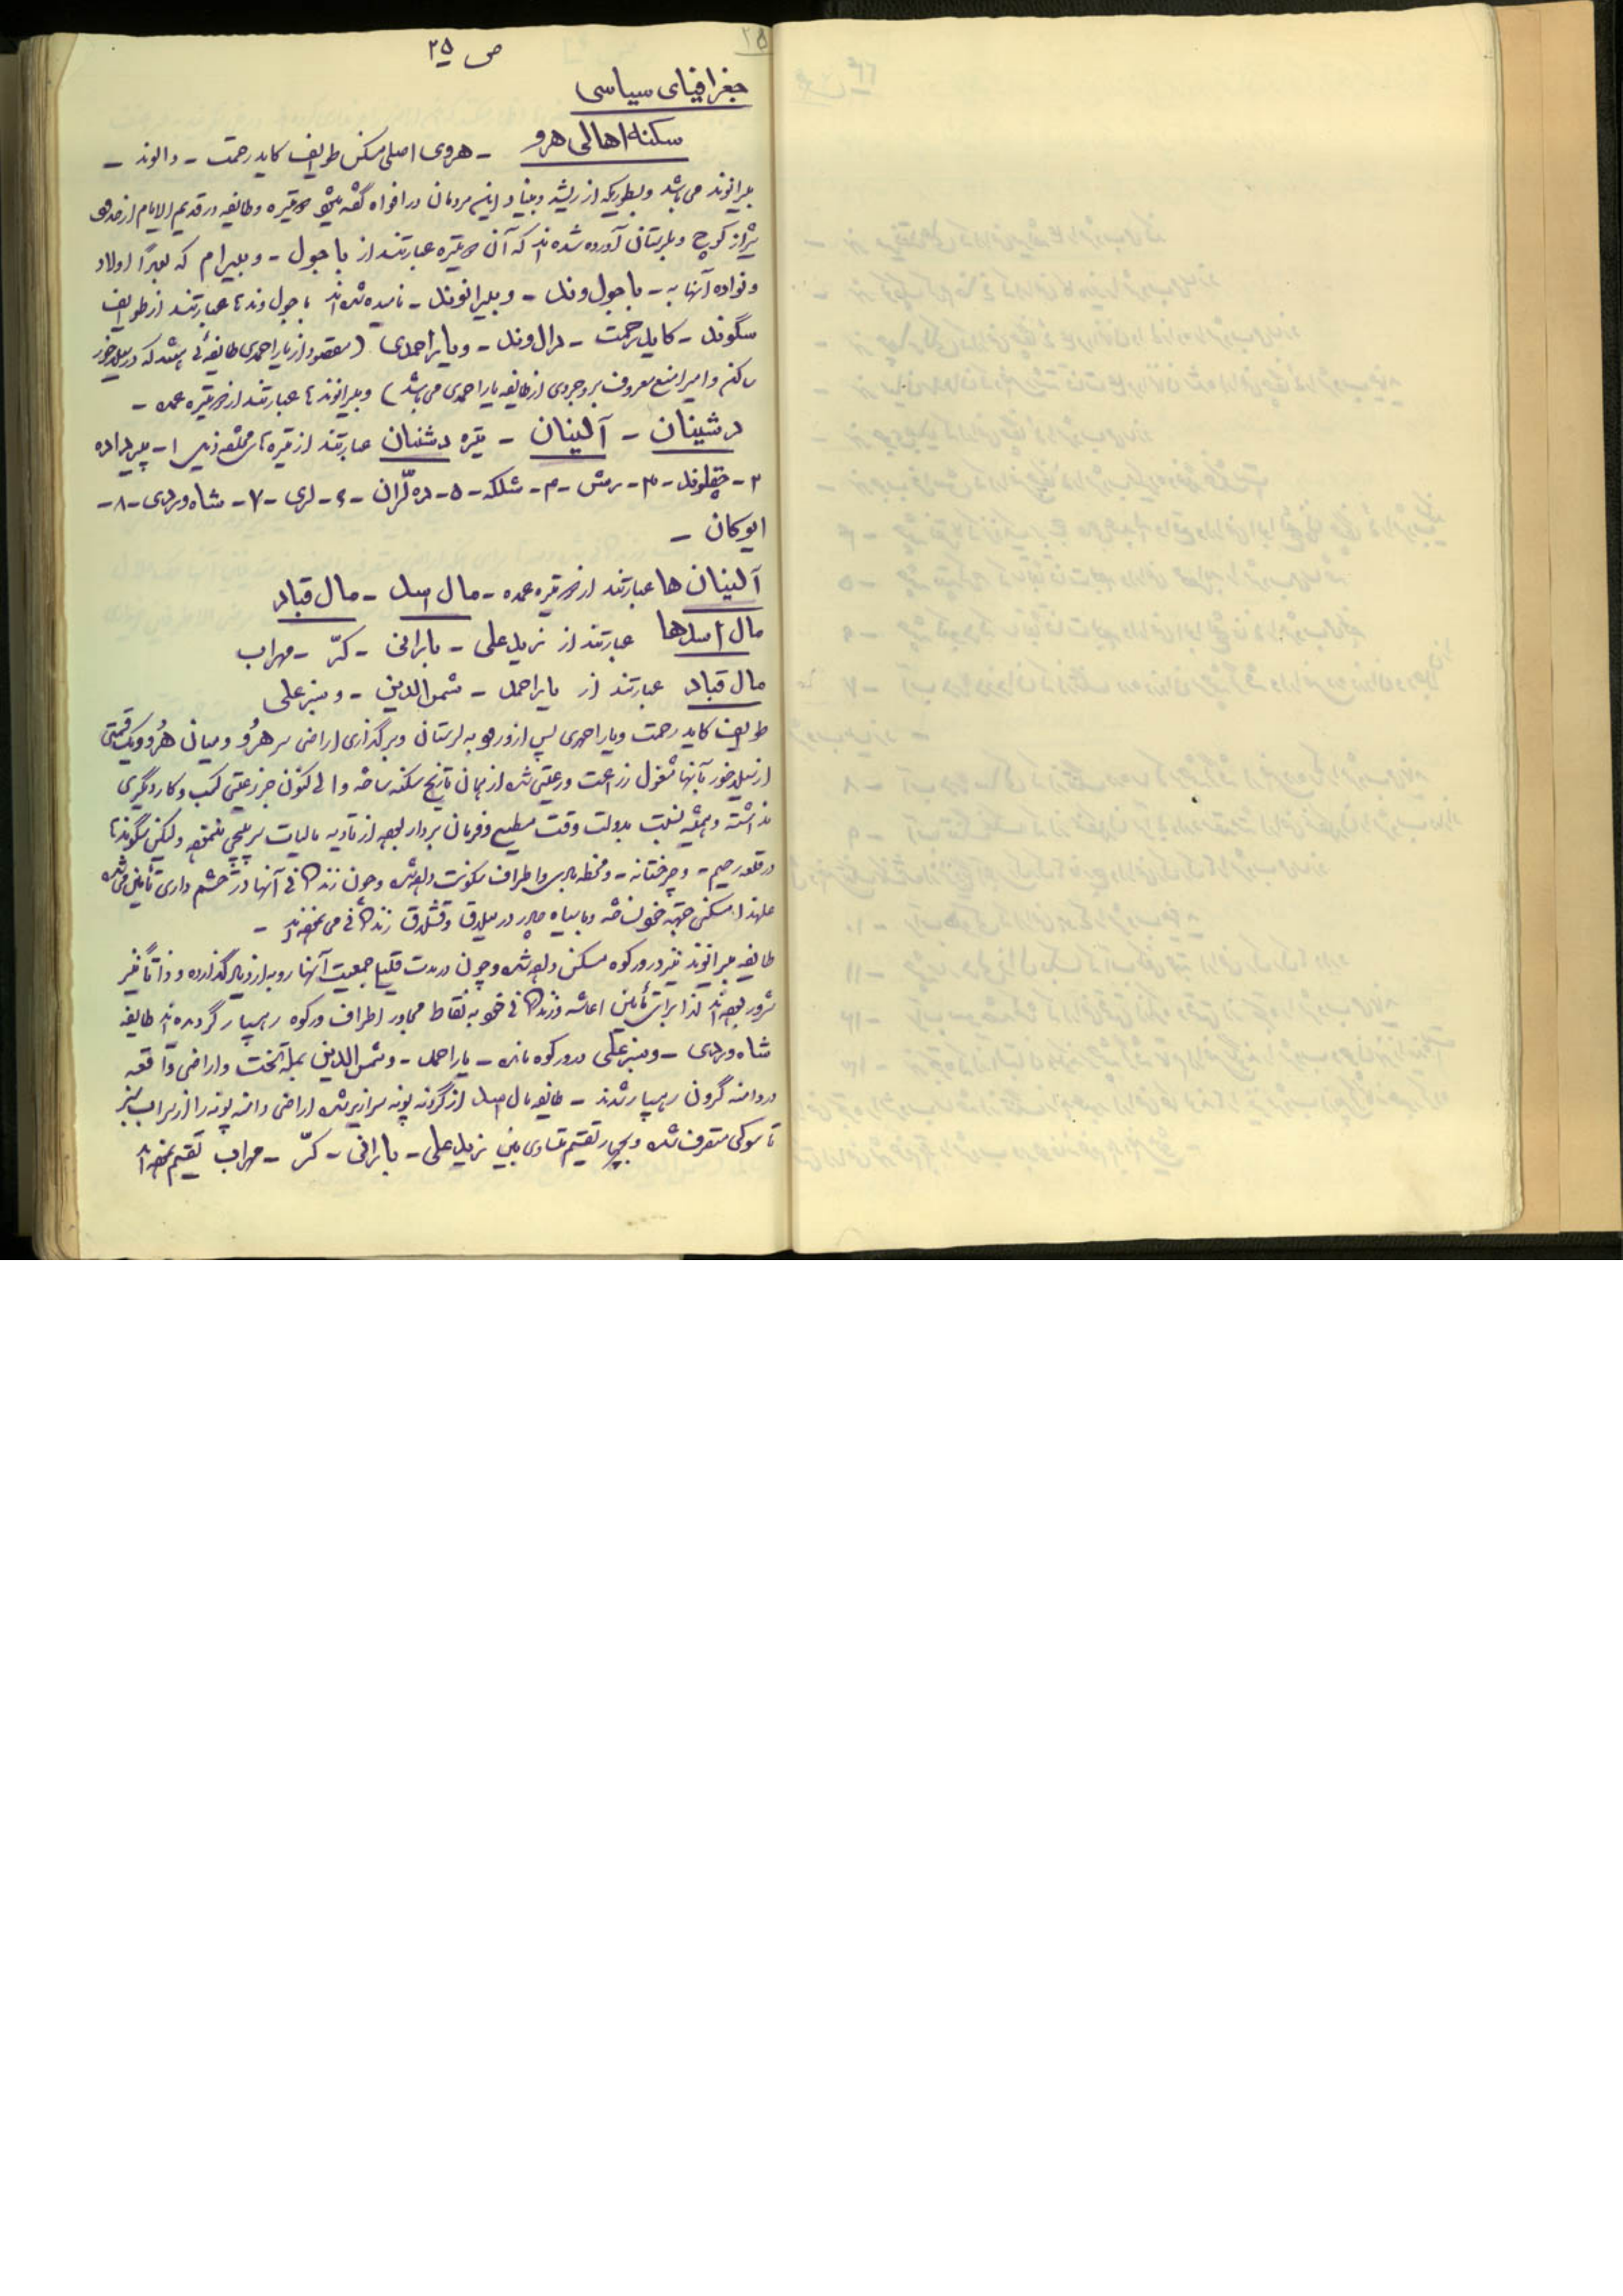 ص ۲۵
۲۵
جغرافیای سیاسی
سکنه اهالی هرو - هروی اصلی مسکن طوایف کاید رحمت - دالوند -
بیرانوند می باشد و بطوریکه از ریشه و بنیاد این مردمان در افواه گفته میشود دو تیره و طایفه در قدیم الایام از حدود
شیراز کوچ و بلرستان آورده شده اند که آن دو تیره عبارتند از باجول - و بیرام که بعداً اولاد
و نواده آنها به - باجول وند - و بیرانوند - نامیده شده اند باجول وندها عبارتند از طوایف
سگوند - کاید رحمت - دال وند - و یار احمدی (مقصود از یار احمدی طایفه ئی باشد که در سیلاخور
ساکن و امیر اشجع معروف بروجردی از طایفه یار احمدی می باشد) و بیرانوندها عبارتند از دو تیره عمده -
دشینان - آلینان - تیره دشنیان عبارتند از تیره های مختلف ذیل ۱- پیرداده
۲- چقلوند - ۳- رمش - ۴- شلکه - ۵- ده لران - ۶- لری - ۷- شاه وردی - ۸-
ایوکان -
آلینان ها عبارتند از دو تیره عمده - مال اسد - مال قباد
مال اسدها عبارتند از زیدعلی - بارانی - کرّ - مهراب
مال قباد عبارتند از یاراحمد - شمس الدین - و سبزعلی
طوایف کاید رحمت و یار احمدی پس از ورود به لرستان و برگذاری اراضی سر هرو و میان هرو و یک قسمتی
از سیلاخور بآنها مشغول زراعت و رعیتی شده از همان تاریخ سکنه ساخته و الی کنون جز رعیتی کسب و کار دیگری
نداشته و همیشه نسبت بدولت وقت مطیع و فرمان بردار بوده از تادیه مالیات سرپیچی ننموده ولیکن سگوندها
در قلعه رحیم - و چرختانه - و محوطه و اطراف سکونت داده شده و چون زندگانی آنها در حشم داری تأمین می شده
علهذا مسکنی جهت خود نساخته و با سیاه چادر در ییلاق و قشلاق زندگانی می نموده اند -
طایفه بیرانوند نیز در ورکوه مسکن داده شده و چون در مدت قلیل جمعیت آنها رو به ازدیاد گذارده و ذاتاً نیز
شرور بوده اند لذا برای تأمین اعاشه و زندگانی خود به نقاط مجاور اطراف ورکوه رهسپار گردیده اند طایفه
شاه وردی - و سبزعلی در ورکوه مانده - یار احمد - و شمس الدین بمله تخت و اراضی واقعه
در دامنه گرون رهسپار شدند - طایفه مال اسد از گردنه پونه سرازیر شده اراضی دامنه پونه را از سراب سبز
تا موکی متصرف شده و بچهار تقسیم تساوی بین زیدعلی - بارانی - کرّ - مهراب تقسیم نموده اند